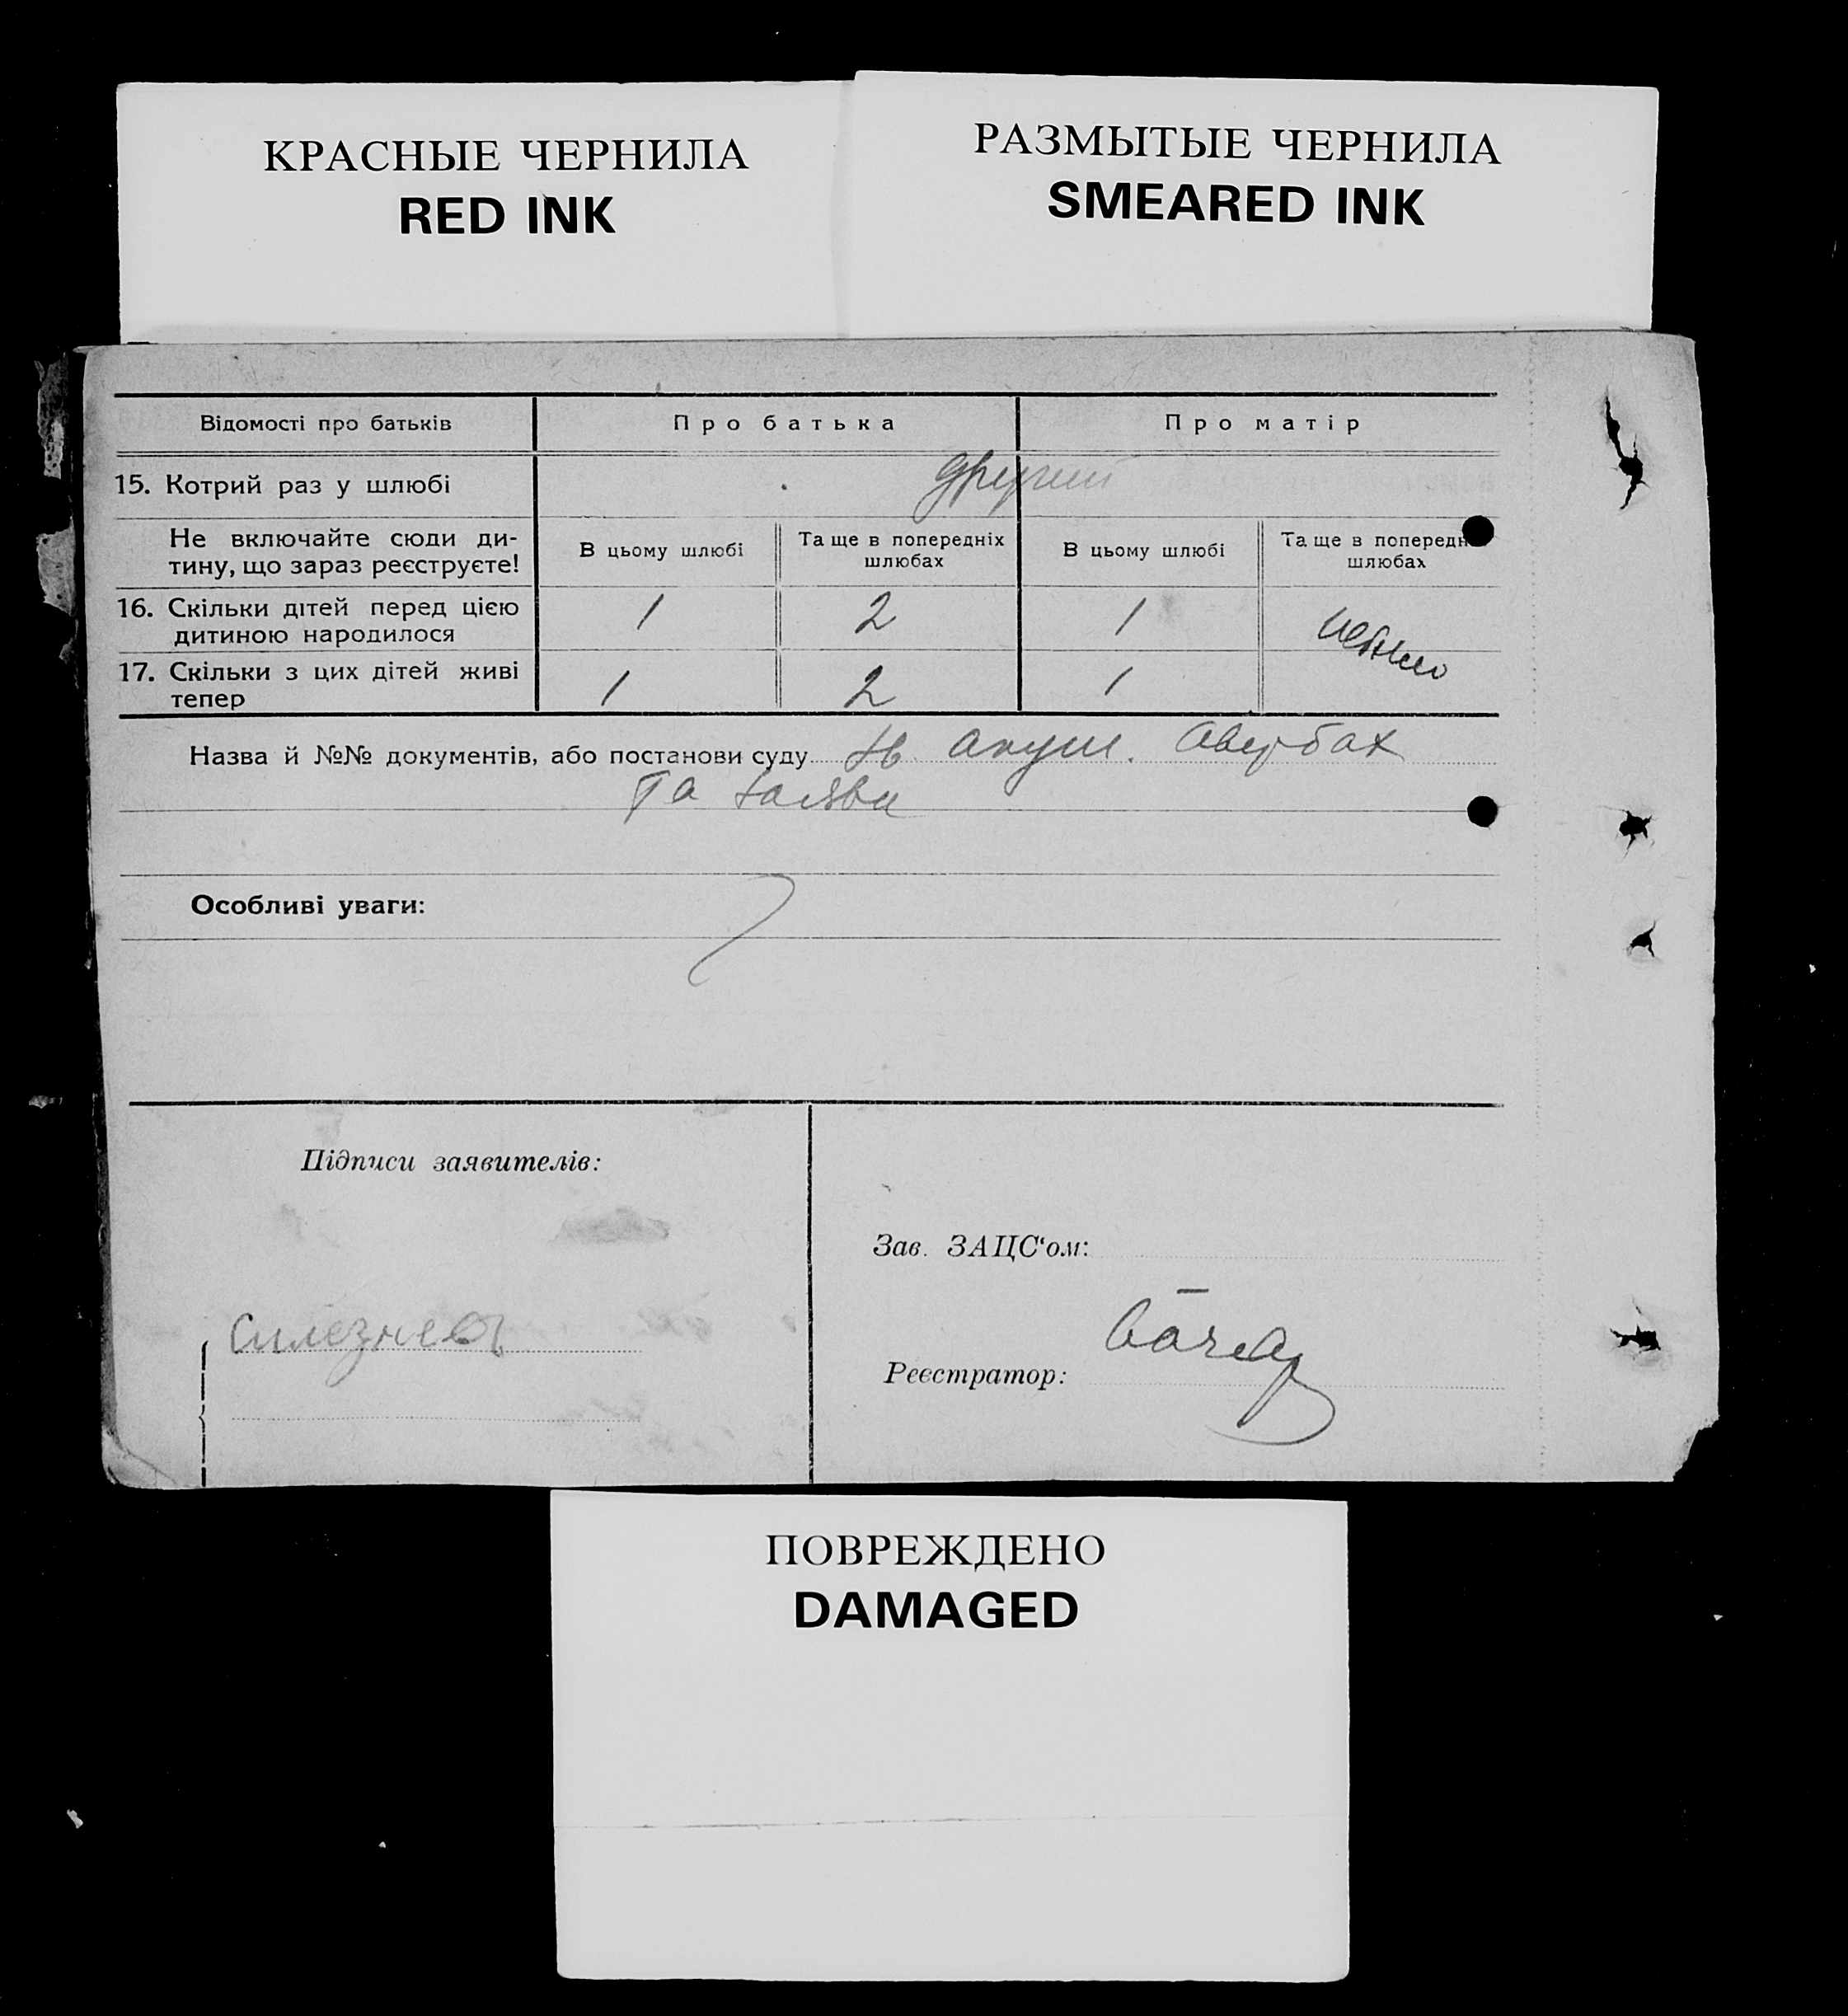 КРАСНЫЕ ЧЕРНИЛА
RED INK
РАЗМЫТЫЕ ЧЕРНИЛА
SMEARED INK
Відомості про батьків
Про батька
Про матір
15. Котрий раз у шлюбі
другий
Не включайте сюди ди-
тину, що зараз реєструєте!
В цьому шлюбі
Та ще в попередніх
шлюбах
В цьому шлюбі
Та ще в попередн
шлюбах
16. Скільки дітей перед цією
дитиною народилося
1
2
1
не було
17. Скільки з цих дітей живі
тепер
1
2
1
Назва й №№ документів, або постанови суду акуш. Авербах
та заява
Особливі уваги:
Підписи заявителів:
Зав. ЗАЦС‘ом:
Реєстратор:
ПОВРЕЖДЕНО
DAMAGED